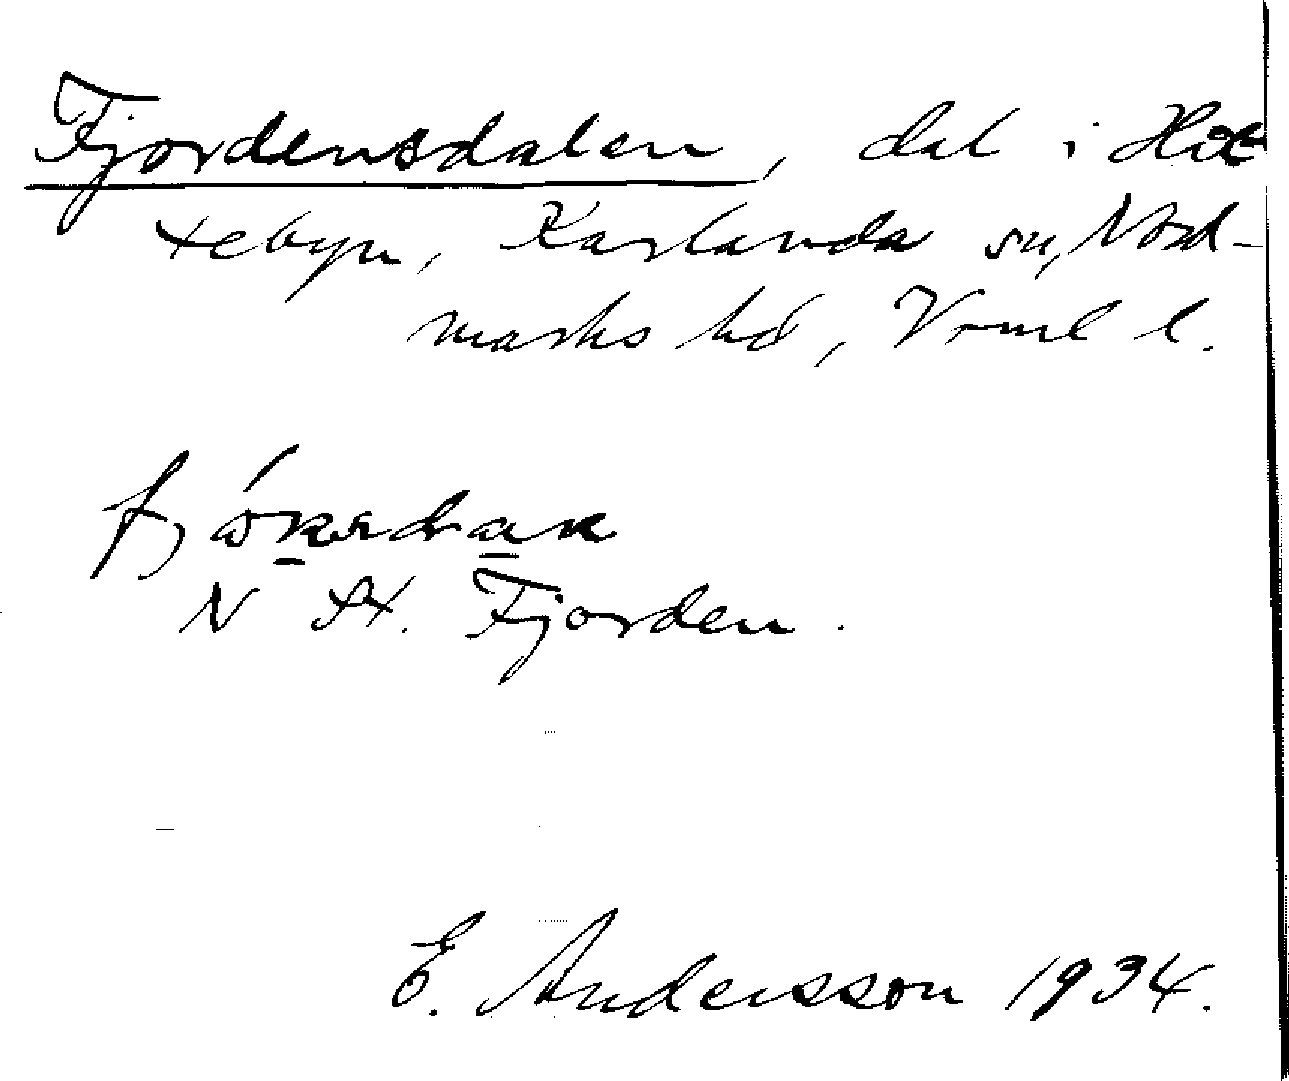 Fjordensdalen, dal i Hä
tebyn, Karlanda sn, Nord-
marks hd, Vrml l.
N St. Fjorden.
E. Andersson 1934.